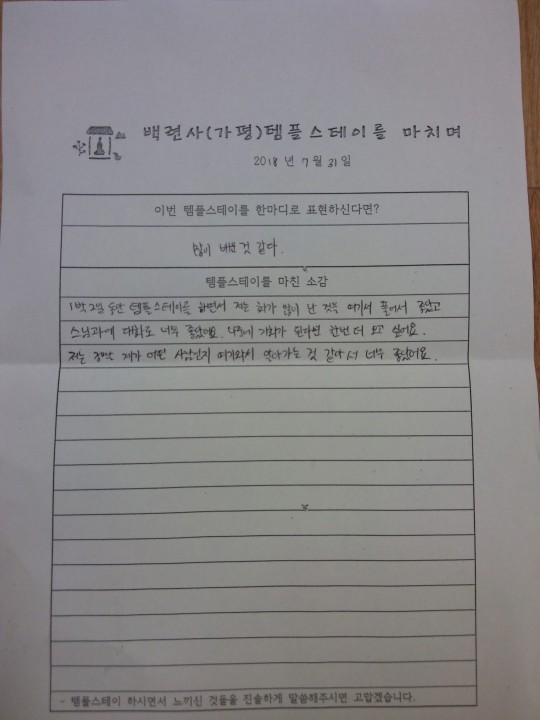 백련사(가평)템플스테이를 마치며
2018 년 7 월 31 일
이번 템플스테이를 한마디로 표현하신다면?
많이 배운 것 같다.
템플스테이를 마친 소감
1박 2일 동안 템플스테이를 하면서 저는 화가 많이 난 것을 여기서 풀어서 좋았고
스님과에 대화도 너무 좋았어요. 나중에 기회가 된다면 한번 더 오고 싶어요.
저는 정말 제가 어떤 사람인지 여기와서 알아가는 것 같아서 너무 좋았어요.
- 템플스테이 하시면서 느끼신 것들을 진솔하게 말씀해주시면 고맙겠습니다.